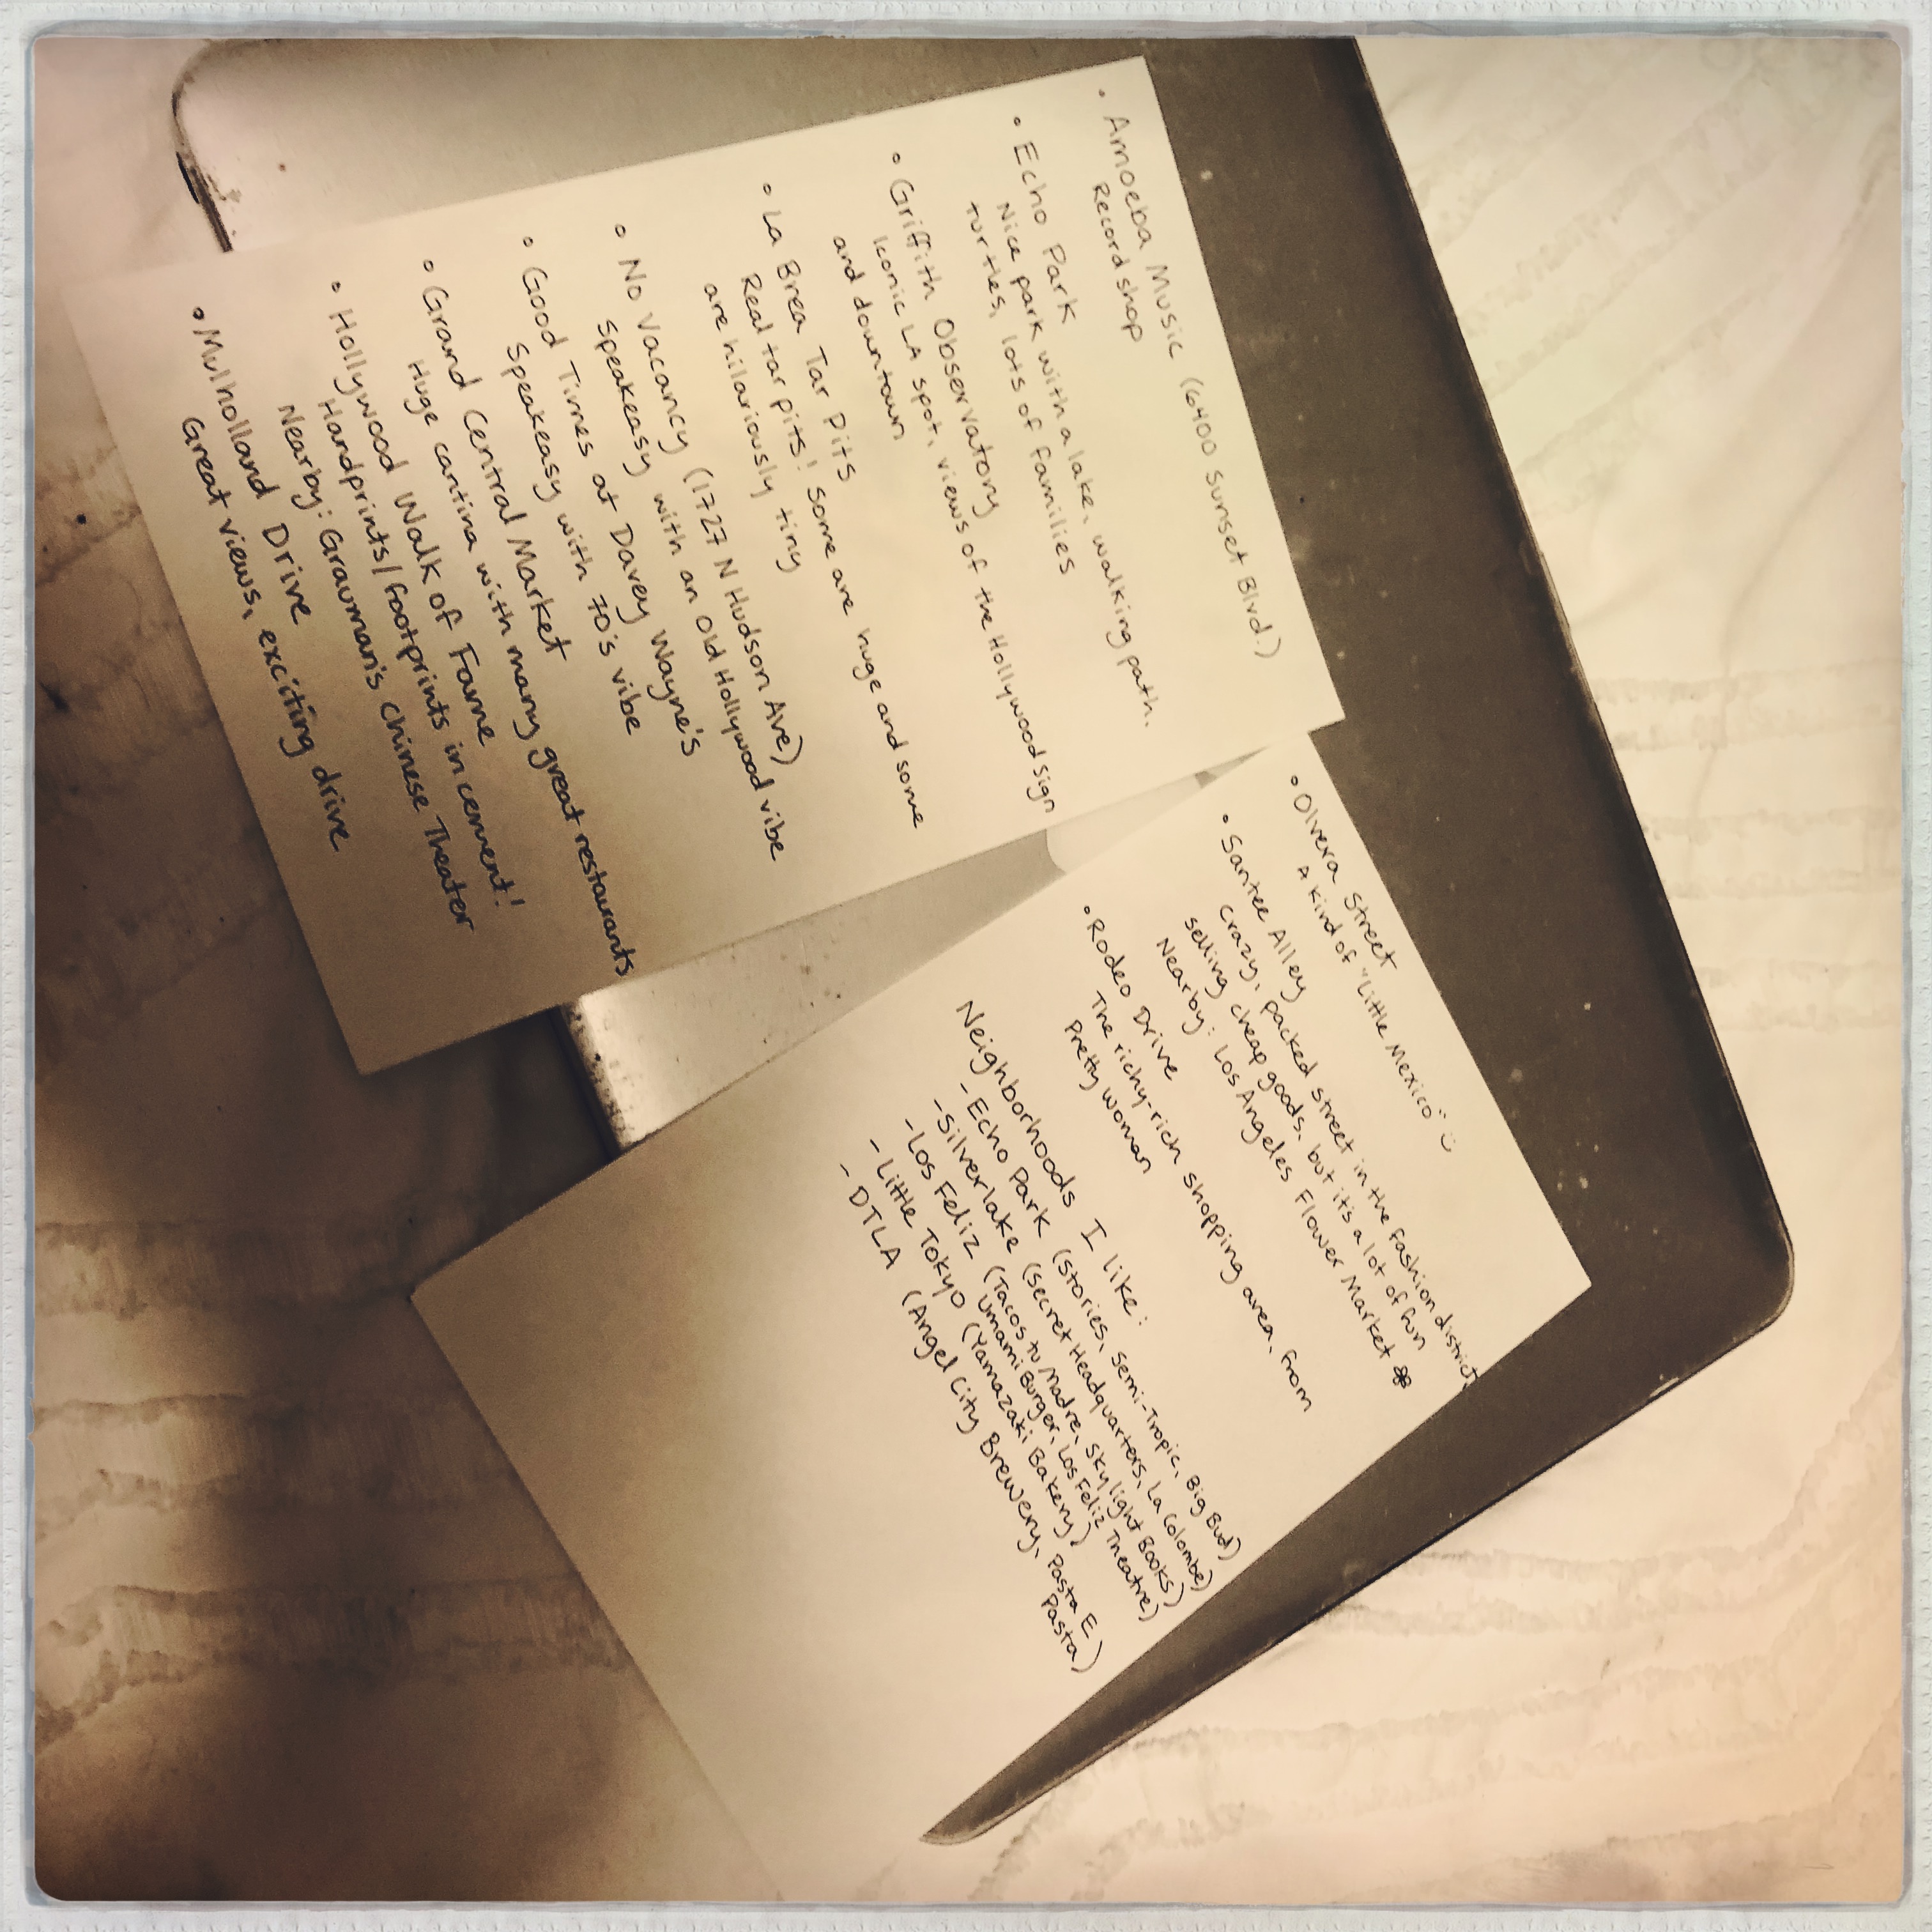 • Amoeba Music (6400 Sunset Blvd.)
Record shop
• Echo Park
Nice park with a lake, walking path,
turtles, lots of families
• Griffith Observatory
Iconic LA spot, views of the Hollywood sign
and downtown
• La Brea Tar Pits
Real tar pits! Some are huge and some
are hilariously tiny
• No Vacancy (1727 N Hudson Ave)
Speakeasy with an Old Hollywood vibe
• Good Times at Davey Wayne's
Speakeasy with 70's vibe
• Grand Central Market
Huge cantina with many great restaurants
• Hollywood Walk of Fame
Handprints/footprints in cement!
Nearby: Grauman's Chinese Theater
• Mulholland Drive
Great views, exciting drive
• Olvera Street
A kind of "Little Mexico" :)
• Santee Alley
Crazy, packed street in the fashion district,
selling cheap goods, but it's a lot of fun
Nearby: Los Angeles Flower Market
• Rodeo Drive
The richy-rich shopping area, from
Pretty Woman
Neighborhoods I like:
- Echo Park (Stories, Semi-Tropic, Big Bud)
- Silverlake (Secret Headquarters, La Colombe)
- Los Feliz (Tacos tu Madre, Skylight Books)
Umami Burger, Los Feliz Theatre)
- Little Tokyo (Yamazaki Bakery)
- DTLA (Angel City Brewery, Pasta E
Pasta)